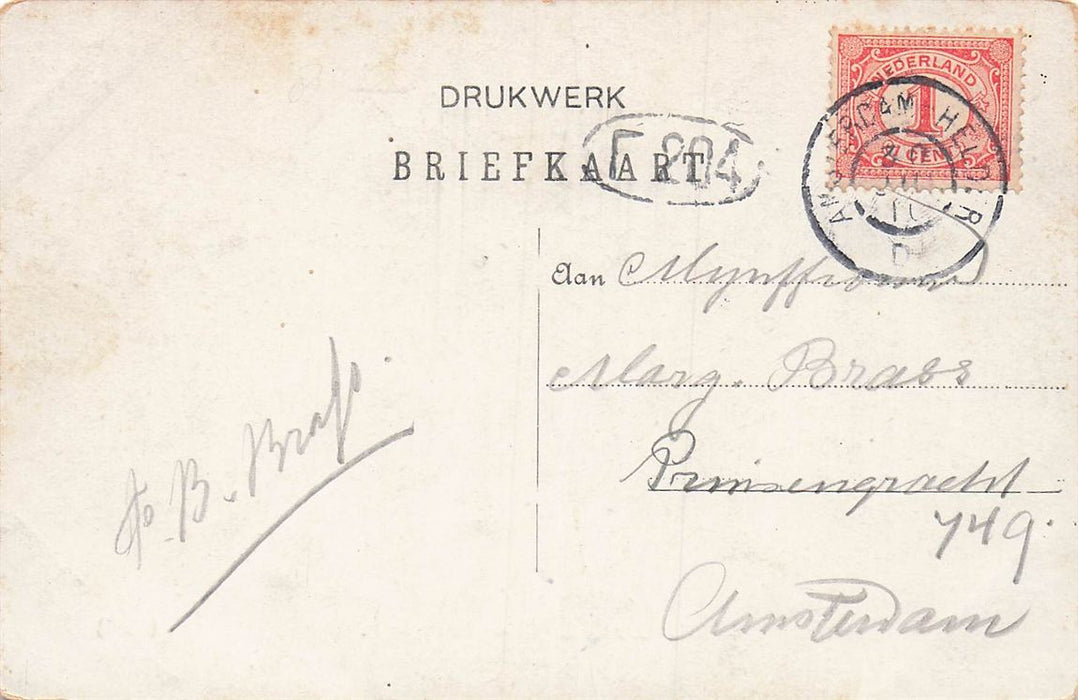 DRUKWERK
BRIEFKAART
NEDERLAND
1
CENT
AMSTERDAM HELDER
D
204
Aan Mynffrouw
Marg. Brass
Prinsengracht
749.
Amsterdam
B. Brass